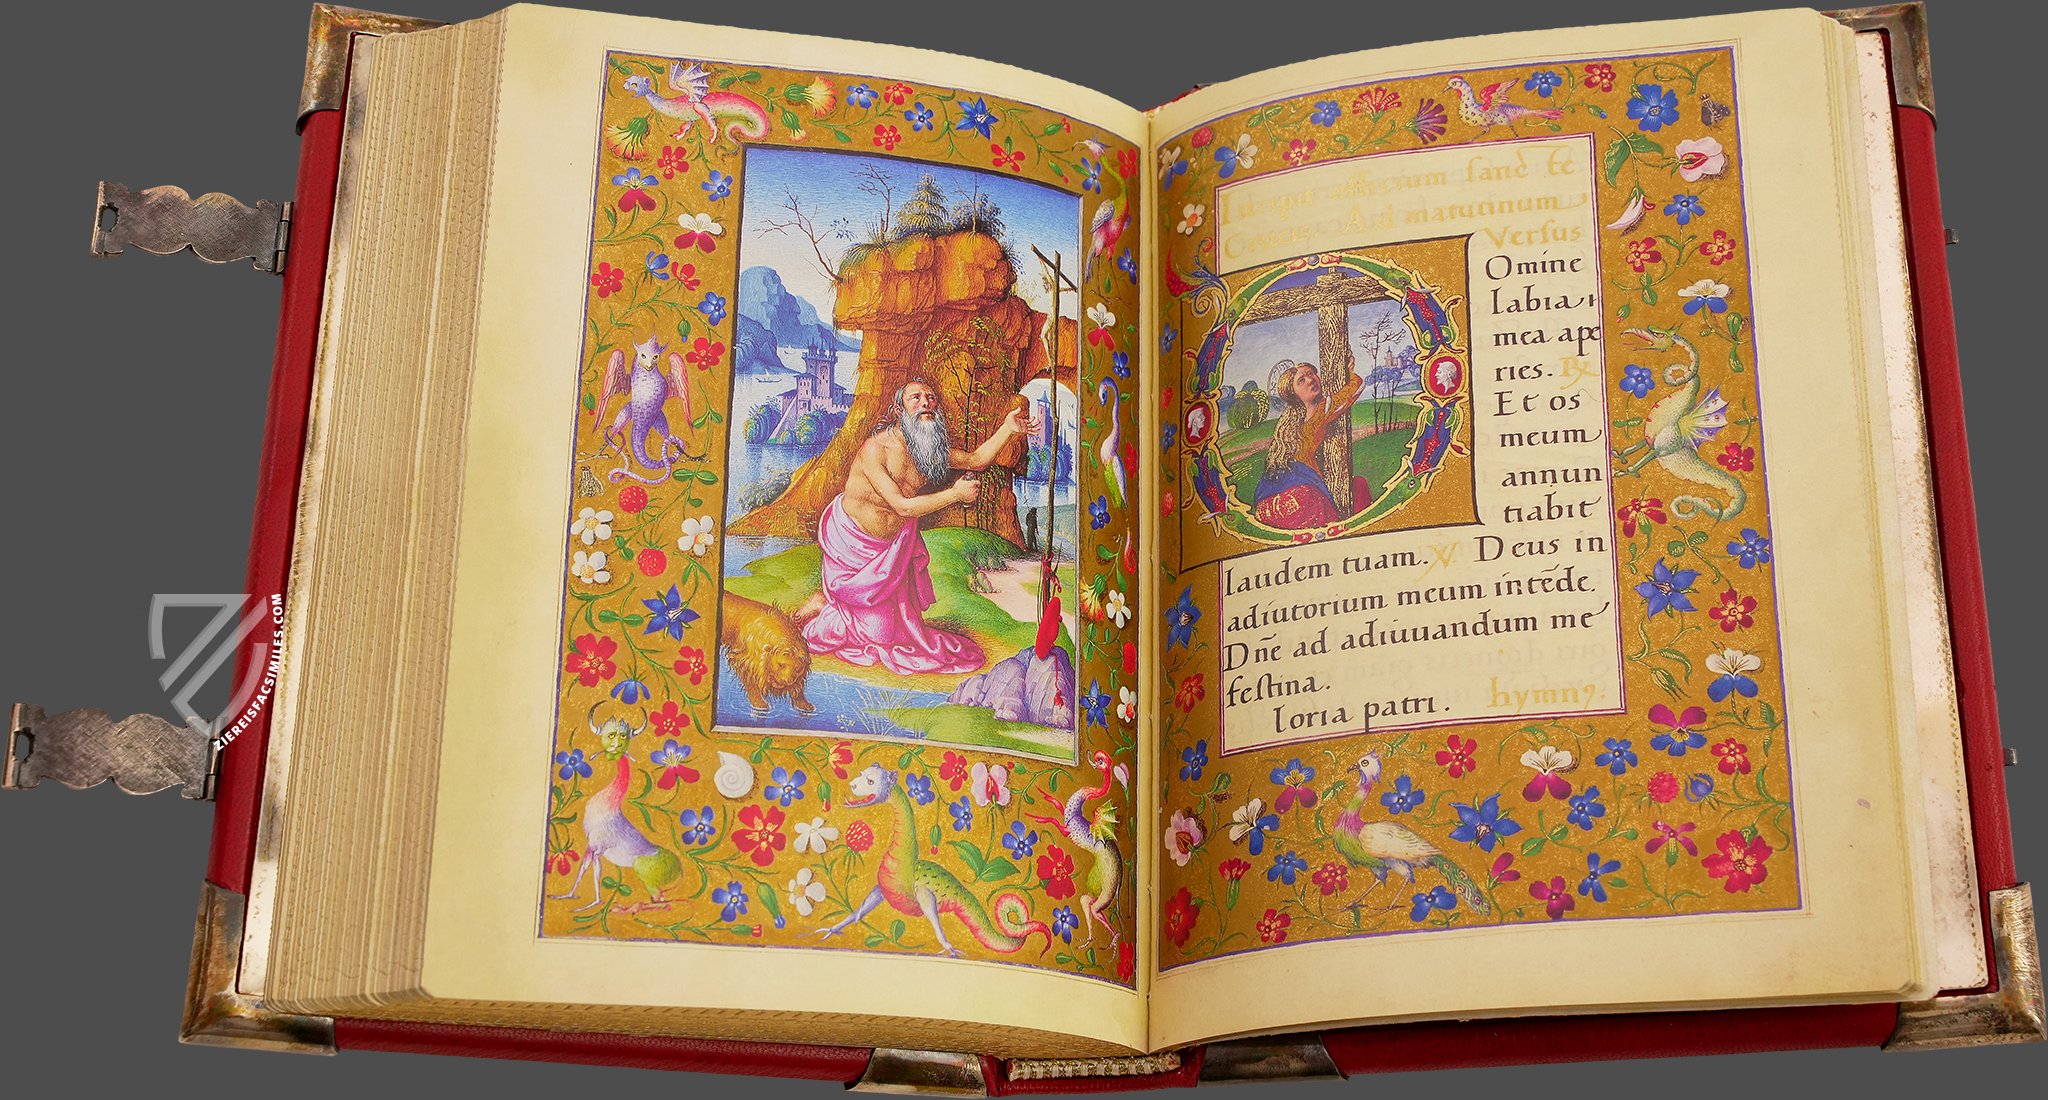 Incipit officium sanctē
Crucis. Ad matutinum
Versus
Omine
labia
mea ape
ries. ℟
Et os
meum
annun
tiabit
laudem tuam. ℣ Deus in
adiutorium meum intēde.
Dn̄e ad adiuuandum me
festina.
loria patri. hymnꝰ.
ZIEREISFACSIMILES.COM